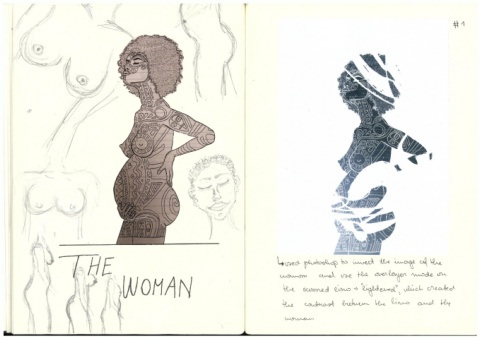 THE
WOMAN
#1
↳ used photoshop to invert the image of the
woman and use the overlayes made on
the scanned lino + "lightened", which created
the contrast between the lino and the
woman